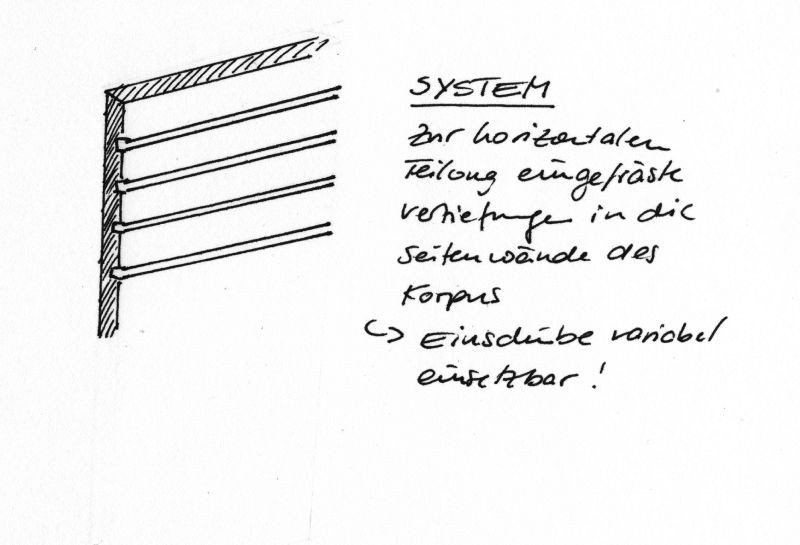 SYSTEM
Zur horizontalen
Teilung eingefräste
vertiefungen in die
Seitenwände des
Korpus
↪ Einschübe variabel
einsetzbar!